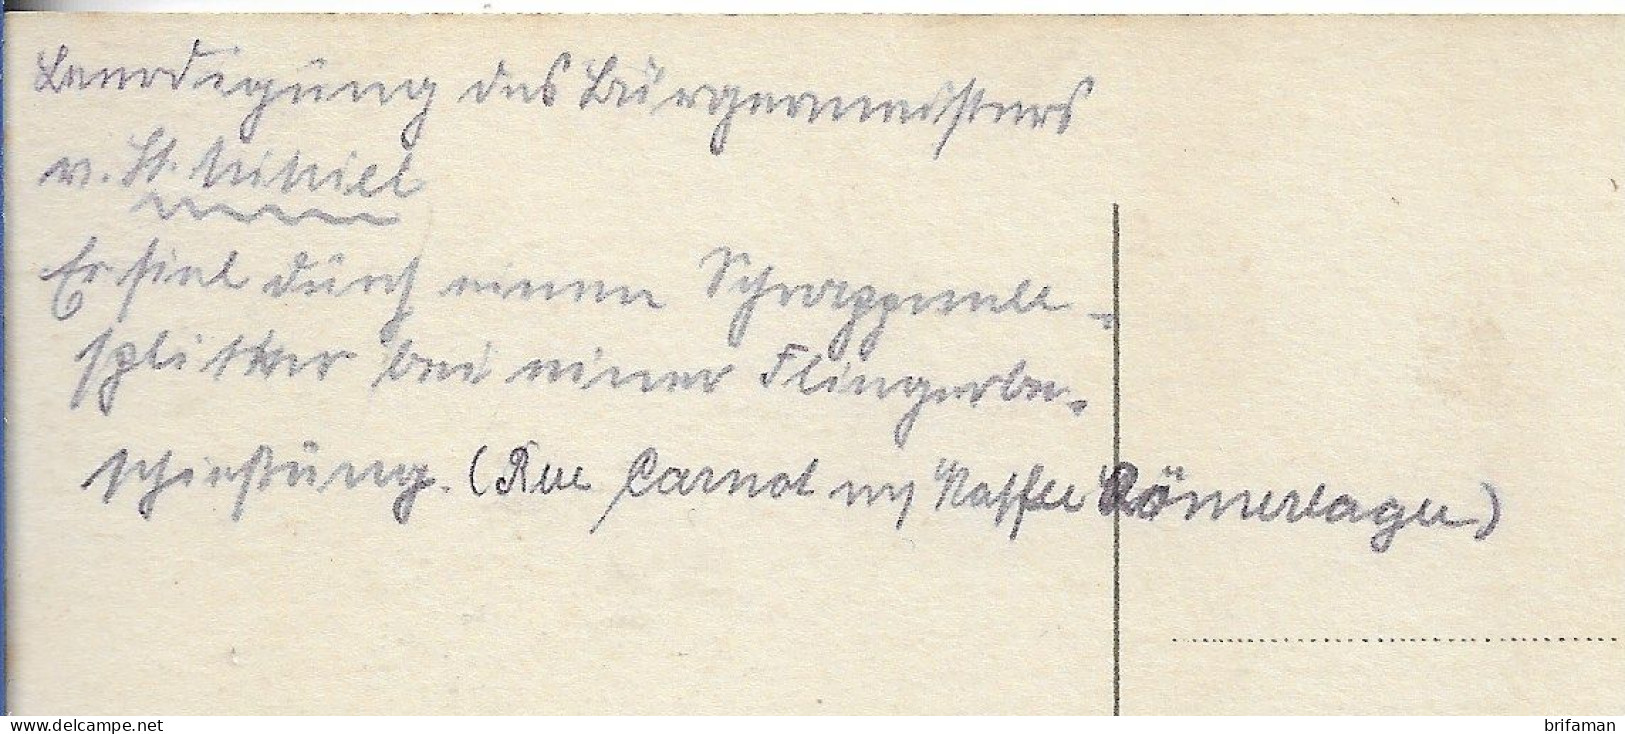 Beerdigung des Bürgermeisters
v. St. Mihiel
Er fiel durch einen Schrappnell-
splitter bei einer Fliegerbe-
schießung. (Rue Carnot Kaffee Römerlager)
brifaman